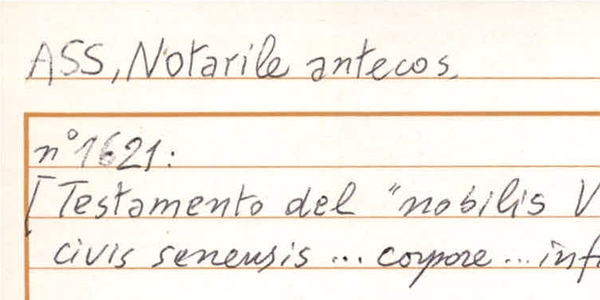 ASS, Notarile antecos.
n° 1621:
[Testamento del "nobilis V
civis senensis ... corpore ... inf